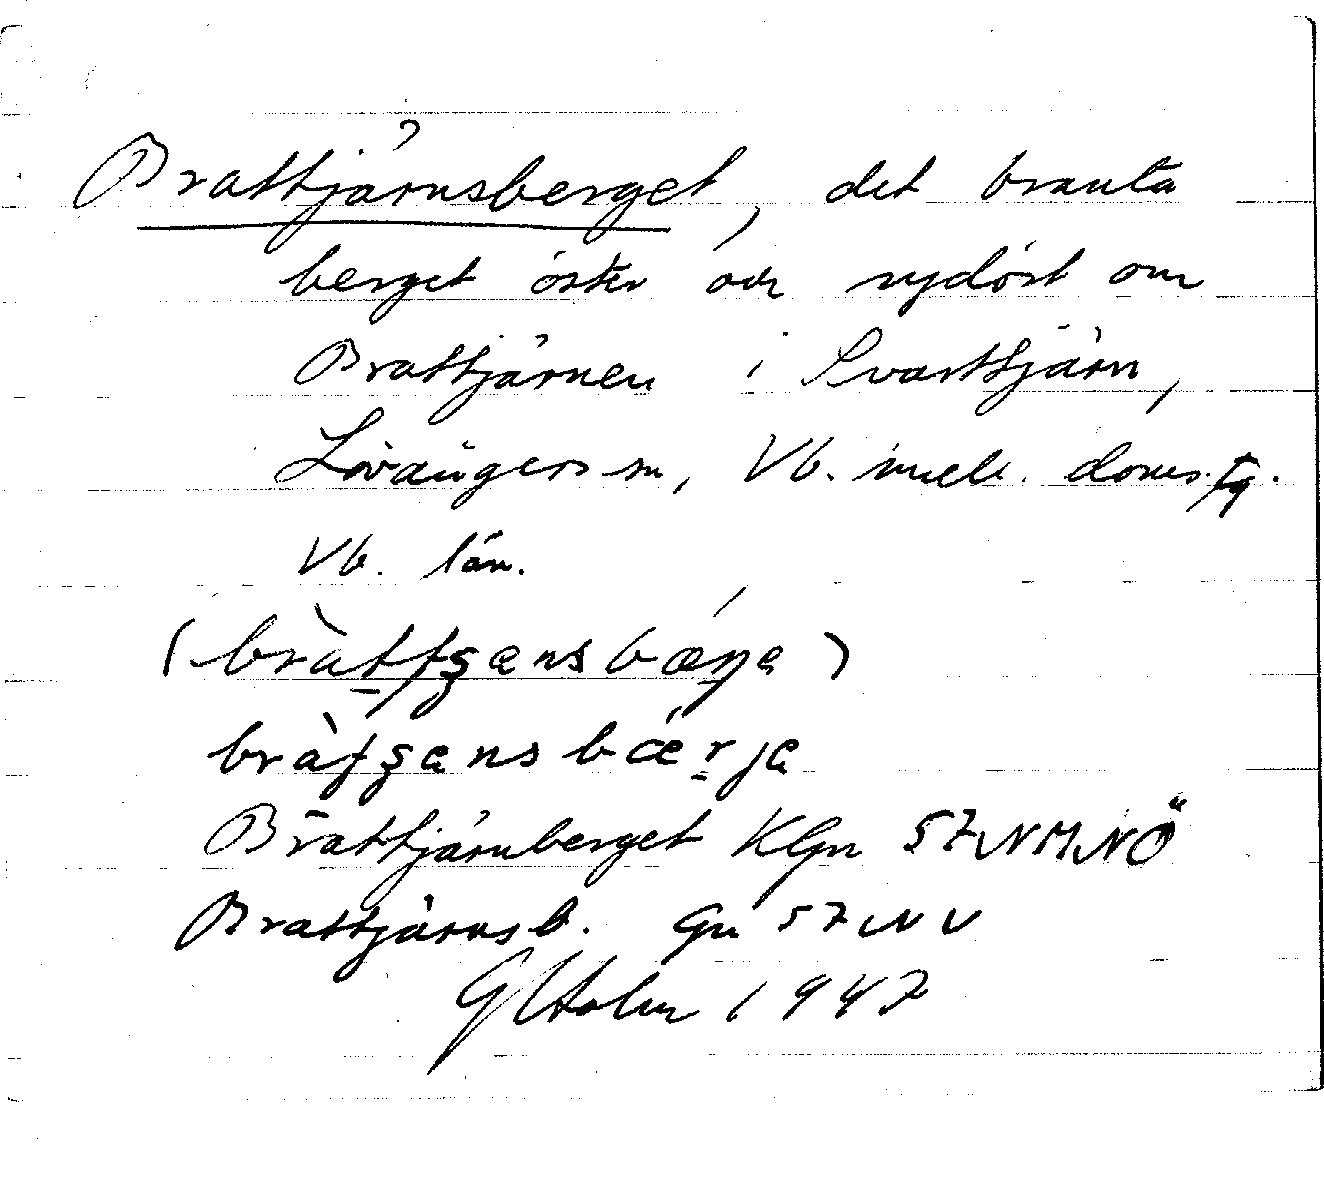 Brattjärnsberget, det branta
berget öster och sydöst om
Brattjärnen i Svarttjärn,
Lövångers sn, Vb. mell. doms.
Vb. län.
Brattjärnberget KGn 57 NM, NÖ
Brattjärnsb. Gn 57 NV
GHolm 1947